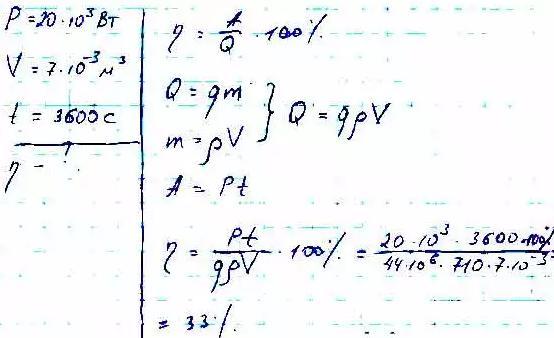 P = 20·10³ Вт
V = 7·10⁻³ м³
t = 3600 с
η – ?
η = A/Q · 100%
Q = qm
m = ρV
} Q = qρV
A = Pt
η = Pt/qρV · 100% = 20·10³·3600·100%/44·10⁶·710·7·10⁻³ =
= 33%